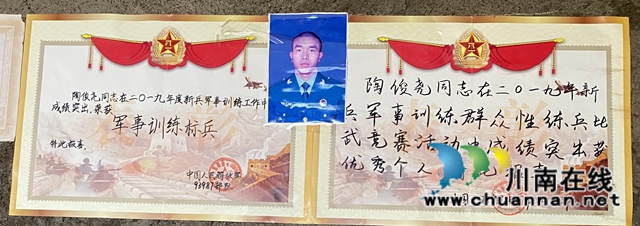 陶俊尧同志在二〇一九年度新兵军事训练工作中
成绩突出,荣获
军事训练标兵
特此报喜。
中国人民解放军
93987部队
陶俊尧同志在二〇一九年新
兵军事训练群众性练兵比
武竞赛活动中成绩突出获
优秀个人
川南在线
www.chuannan.net